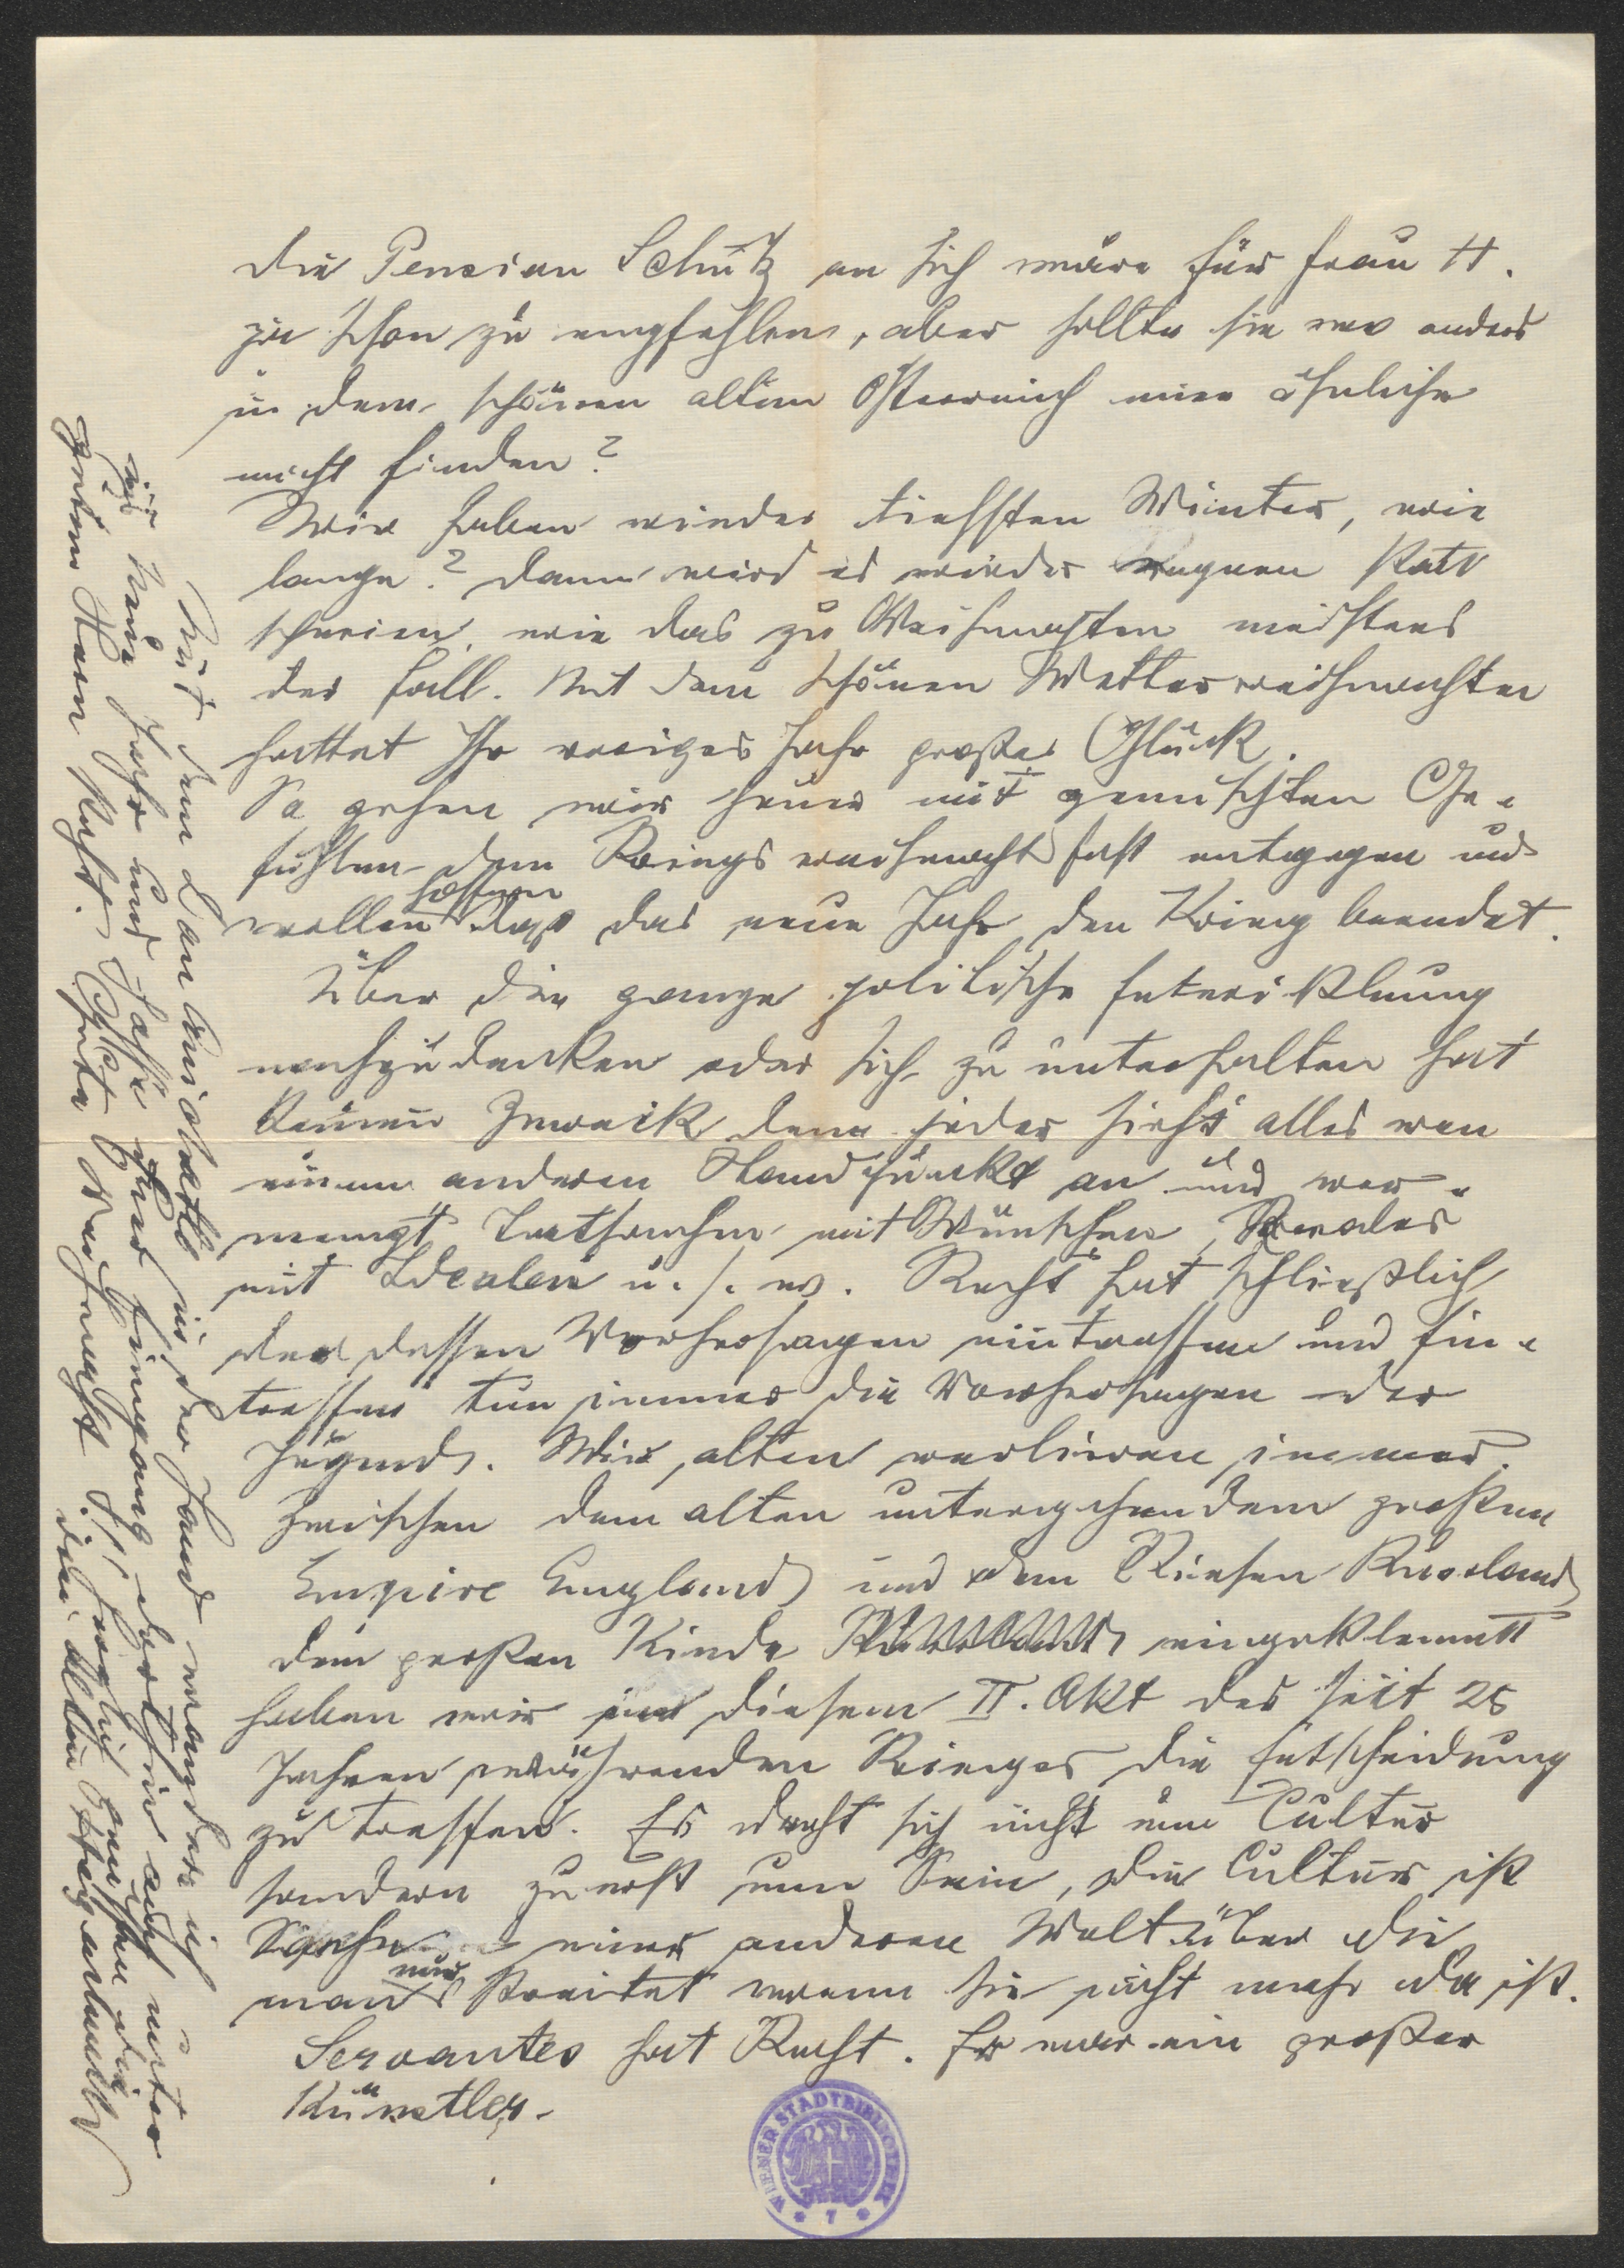 Die Pension Schütz an sich wäre für Frau H.
ja schon zu empfehlen, aber sollte sie wo anders
in dem schönen alten Österreich eine ähnliche
nicht finden?
Wir haben wieder tiefsten Winter, wie
lange? Dann wird es wieder Regnen statt
schneien, wie das zu Weihnachten meistens
der Fall. Mit dem schönen Wetter weihnachten
hattet Ihr voriges Jahr großes Glück.
So gehen wir heuer mit gemischten Ge-
fühlen dem Kriegsweihnachtsfest entgegen und
wollen hoffen daß das neue Jahr den Krieg beendet.
Über die ganze politische Entwicklung
nachzudenken oder sich zu unterhalten hat
keinen Zweck denn jeder sieht alles von
einem anderen Standpunkt an und ver-
mengt Tatsachen mit Wünschen, Reales
mit Idealen u. s. w. Recht hat schließlich
der dessen Vorhersagen eintreffen und Ein-
treffen tun immer die Vorhersagen der
Jugend. Wir alten verlieren immer.
Zwischen dem alten untergehendem großen
Empire England und dem Riesen Russland
dem großen Kinde eingeklemmt
haben wir in diesem II. Akt des seit 25
Jahren währenden Krieges die Entscheidung
zu treffen. Es dreht sich nicht um Cultur
sondern zuerst um Sein, die Cultur ist
Sache einer anderen Welt über die
man nur streitet wenn sie nicht mehr da ist.
Servantes hat Recht. Er war ein großer
Künstler.
Mit dem in der Hand wandere ich
ins Neue Jahr und hoffe Eingang auch unter
Guten Herrn Gute Weihnacht! herzlich
dein alter
WIENER STADTBIBLIOTHEK
* 7 *